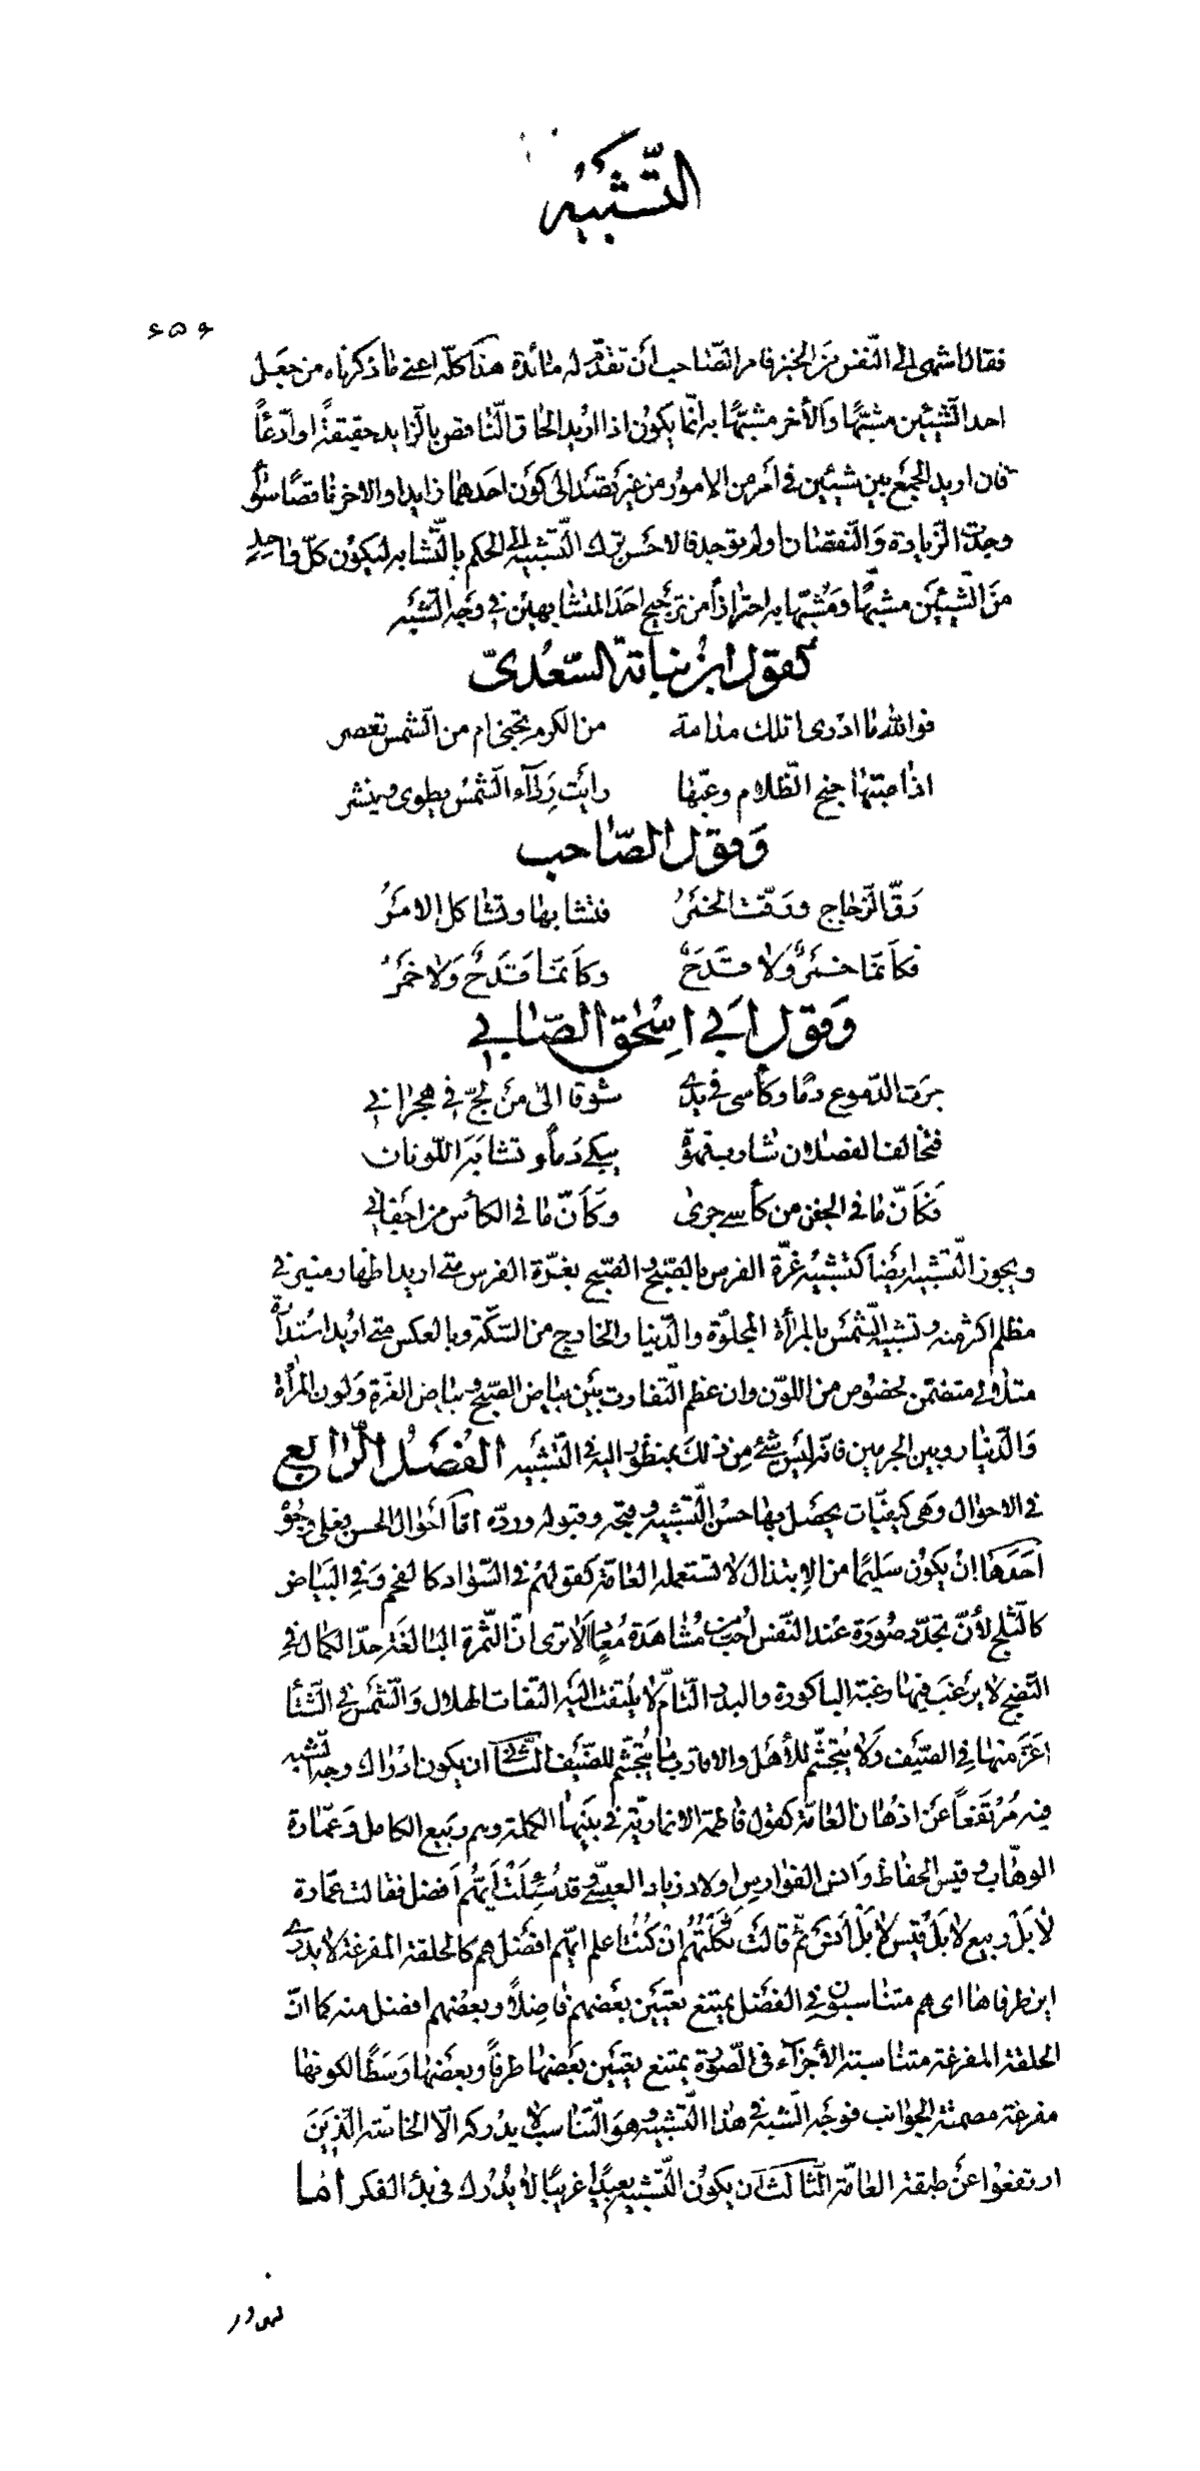 التشبيه
۶۵۶
فقال اشهى الى النفس من الخبز فامر الصاحب أن تقدّم له مائدة هذا كلّه اعنى ما ذكرناه من جعل
احد الشيئين مشبّهًا والأخر مشبّهًا به انّما يكون اذا اريد الحاق النّاقص بالزايد حقيقةً او ادّعًا
فان اريد الجمع بين شيئين في أمر من الامور من غير قصد الى كون احدهما زايدا والاخر ناقصًا سواءٌ
وجدت الزيادة والنقصان او لم توجد فالاحسن ترك التشبيه الى الحكم بالتّشابه ليكون كلّ واحدٍ
من الشيئين مشبّهًا ومُشبّها به احترازاً من ترجيح احد المتشابهين في وجه الشّبه
كقول ابن نباتة السّعدىّ
فوالله ما ادرى اتلك مدامة من الكرم تجنى ام من الشمس تعصر
اذا صبّها جنح الظّلام وعبّها رايت رداء الشّمس يطوى وينشر
وقول الصّاحب
رقّ الزجاج ورقّت الخمرُ فتشابها وتشاكل الامرُ
فكأنّما خمرٌ ولا قدحٌ وكأنّما قدحٌ ولا خمرُ
وقول أبي اسحق الصّابي
جرت الدّموع دمًا وكأسى في يدى شوقا الى من لجّ في هجراني
فتخالف الفعلان شارب قهوة يبكى دماً وتشابه اللّونان
فكأنّ ما في الجفن من كأسى جرى وكأنّ ما في الكأس من اجفاني
ويجوز التّشبيه ايضا كتشبيه غرّة الفرس بالصّبح والصّبح بغرّة الفرس متى اريد اظهار منير في
مظلم اكثر منه وتشبيه الشّمس بالمرأة المجلوّة والدّينار الخارج من السّكّة وبالعكس متى اريد استدارة
متلألىء متضمّن لخصوص من اللون وان عظم التّفاوت بين بياض الصّبح وبياض الغرّة ولون المرأة
والدّينار وبين الجرمين فانّه ليس شئ من ذلك بمنظور اليه في التّشبيه الفصل الرّابع
في الاحوال وهى كيفيّات يحصل بها حسن التّشبيه وقبحه وقبوله وردّه امّا أحوال الحسن فعلى وجوهٍ
احدها ان يكون سليمًا من الابتذال لا تستعمله العامّة كقولهم في السّواد كالفحم وفي البياض
كالثّلج لأنّ تجدّد صورة عند النّفس احبّ من مشاهدة معادٍ الا ترى انّ الثّمرة البالغة حدّ الكمال في
النّضج لا يرغب فيها رغبة الباكورة والبدر التّامّ لا يلتفت اليه التفات الهلال والشّمس في الشّتأ
اعزّ منها في الصّيف ولا يتجشّم للأهل والاقارب ما يتجشّم للضّيف الثّانى ان يكون ادراك وجه الشّبه
فيه مُرتفعاً عن اذهان العامّة كقول فاطمة الانماريّة في بنيها الكملة وهم ربيع الكامل وعمارة
الوهّاب وقيس الحفاظ وانس الفوارس اولاد زياد العبسيّ وقد سُئلت أيّهم أفضل فقالت عمارة
لا بل ربيع لا بل قيس لا بل أنس ثمّ قالت ثكلتهم ان كنت اعلم ايّهم افضل هم كالحلقة المفرغة لا يدرى
اين طرفاها اى هم متناسبون في الفضل يمتنع تعيين بعضهم فاضلاً وبعضهم افضل منه كما انّ
الحلقة المفرغة متناسبة الأجزآء في الصّورة يمتنع تعيين بعضها طرفاً وبعضها وسطًا لكونها
مفرغة مصمتة الجوانب فوجه الشّبه في هذا التّشبيه وهو التّناسب لا يدركه الّا الخاصّة الّذين
ارتفعوا عن طبقة العامّة الثّالث ان يكون التّشبيه بعيدًا غريبًا لا يُدرك في بدأ الفكر امّا